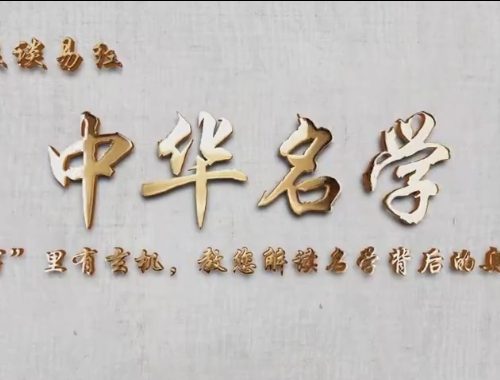 谈易弘
中华名学
”里有玄机，教您解读名学背后的真